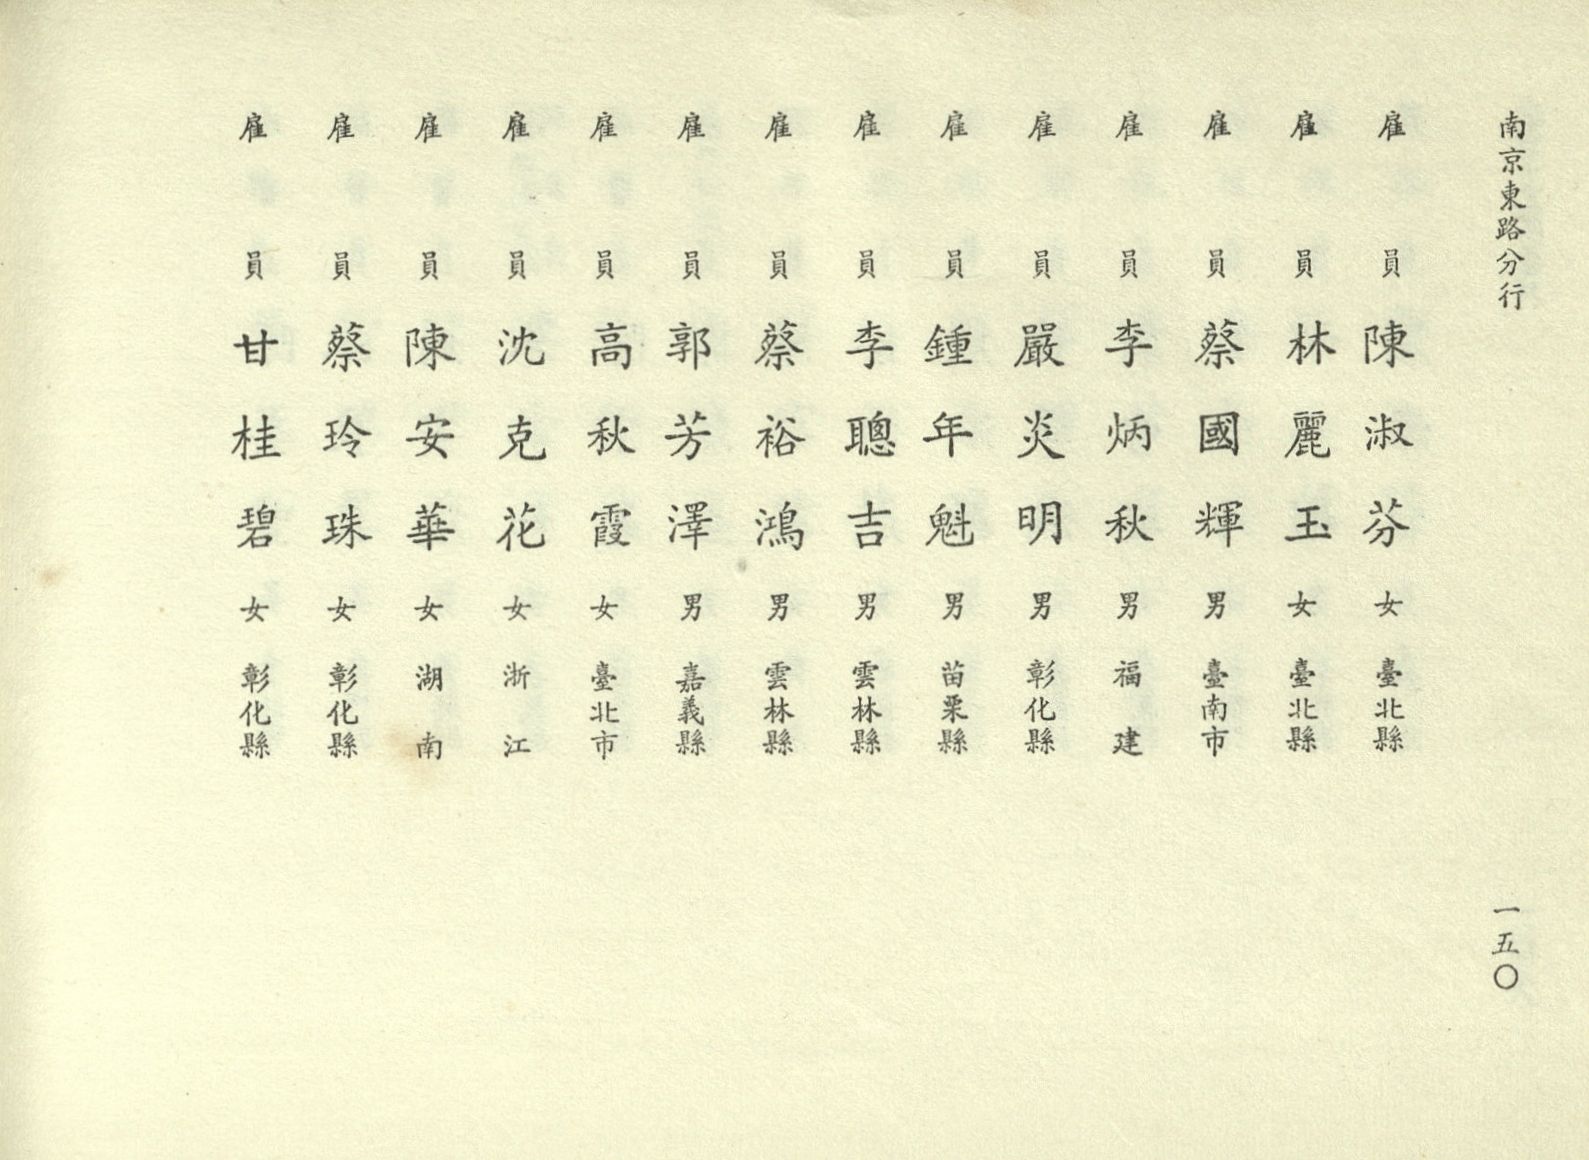 南京東路分行
雇員 陳淑芬 女 臺北縣
雇員 林麗玉 女 臺北縣
雇員 蔡國輝 男 臺南市
雇員 李炳秋 男 福建
雇員 嚴炎明 男 彰化縣
雇員 鍾年魁 男 苗栗縣
雇員 李聰吉 男 雲林縣
雇員 蔡裕鴻 男 雲林縣
雇員 郭芳澤 男 嘉義縣
雇員 高秋霞 女 臺北市
雇員 沈克花 女 浙江
雇員 陳安華 女 湖南
雇員 蔡玲珠 女 彰化縣
雇員 甘桂碧 女 彰化縣
一五〇